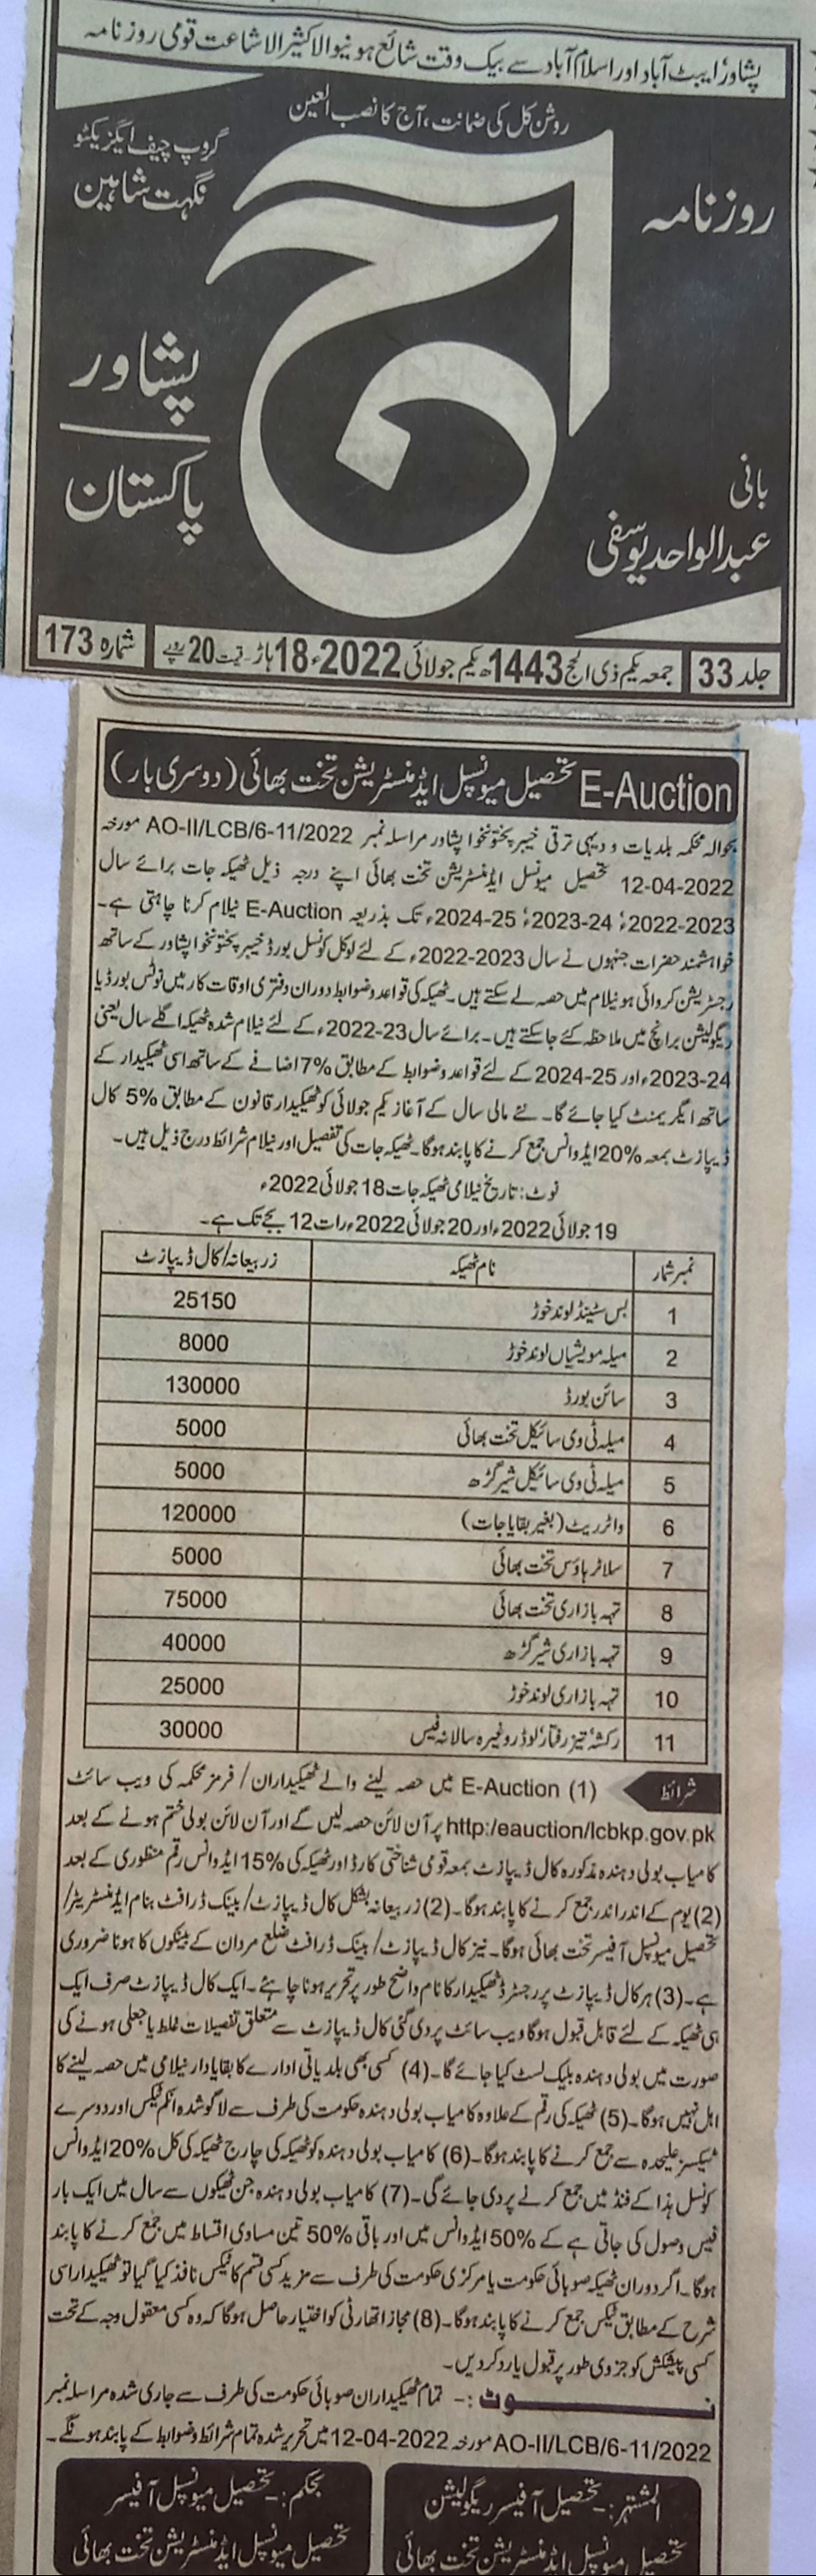 پشاور، ایبٹ آباد اور اسلام آباد سے بیک وقت شائع ہونیوالا کثیر الاشاعت قومی روزنامہ
روشن کل کی ضمانت، آج کا نصب العین
روزنامہ
آج
گروپ چیف ایگزیکٹو
نگہت شاہین
پشاور
پاکستان
بانی
عبدالواحد یوسفی
جلد 33
جمعہ یکم ذی الحج 1443ھ یکم جولائی 2022ء 18 ہاڑ۔ قیمت 20 روپے
شمارہ 173
E-Auction تحصیل میونسپل ایڈمنسٹریشن تخت بھائی (دوسری بار)
بحوالہ محکمہ بلدیات و دیہی ترقی خیبر پختونخوا پشاور مراسلہ نمبر AO-II/LCB/6-11/2022 مورخہ
12-04-2022 تحصیل میونسپل ایڈمنسٹریشن تخت بھائی اپنے درجہ ذیل ٹھیکہ جات برائے سال
2022-2023، 2023-24، 2024-25ء تک بذریعہ E-Auction نیلام کرنا چاہتی ہے۔
خواہشمند حضرات جنہوں نے سال 2022-2023ء کے لئے لوکل کونسل بورڈ خیبر پختونخوا پشاور کے ساتھ
رجسٹریشن کروائی ہو نیلام میں حصہ لے سکتے ہیں۔ ٹھیکہ کی قواعد و ضوابط دوران دفتری اوقات کار میں نوٹس بورڈ یا
ریگولیشن برانچ میں ملاحظہ کئے جاسکتے ہیں۔ برائے سال 2022-23ء کے لئے نیلام شدہ ٹھیکہ اگلے سال یعنی
2023-24ء اور 2024-25 کے لئے قواعد و ضوابط کے مطابق 7% اضافے کے ساتھ اسی ٹھیکیدار کے
ساتھ ایگریمنٹ کیا جائے گا۔ نئے مالی سال کے آغاز یکم جولائی کو ٹھیکیدار قانون کے مطابق 5% کال
ڈیپازٹ بمعہ 20% ایڈوانس جمع کرنے کا پابند ہوگا۔ ٹھیکہ جات کی تفصیل اور نیلام شرائط درج ذیل ہیں۔
نوٹ: تاریخ نیلامی ٹھیکہ جات 18 جولائی 2022ء
19 جولائی 2022ء اور 20 جولائی 2022ء رات 12 بجے تک ہے۔
نمبر شمار نام ٹھیکہ زربیعانہ/کال ڈیپازٹ
1 بس سٹینڈ لوندخوڑ 25150
2 میلہ مویشیاں لوندخوڑ 8000
3 سائن بورڈ 130000
4 میلہ ٹی وی سائیکل تخت بھائی 5000
5 میلہ ٹی وی سائیکل شیر گڑھ 5000
6 واٹر ریٹ (بغیر بقایا جات) 120000
7 سلاٹر ہاؤس تخت بھائی 5000
8 تہہ بازاری تخت بھائی 75000
9 تہہ بازاری شیر گڑھ 40000
10 تہہ بازاری لوندخوڑ 25000
11 رکشہ تیز رفتار، لوڈر وغیرہ سالانہ فیس 30000
شرائط (1) E-Auction میں حصہ لینے والے ٹھیکیداران / فرمز محکمہ کی ویب سائٹ
http:/eauction/lcbkp.gov.pk پر آن لائن حصہ لیں گے اور آن لائن بولی ختم ہونے کے بعد
کامیاب بولی دہندہ مذکورہ کال ڈیپازٹ بمعہ قومی شناختی کارڈ اور ٹھیکہ کی 15% ایڈوانس رقم منظوری کے بعد
(2) یوم کے اندر اندر جمع کرنے کا پابند ہوگا۔ (2) زربیعانہ بشکل کال ڈیپازٹ / بینک ڈرافٹ بنام ایڈمنسٹریٹر/
تحصیل میونسپل آفیسر تخت بھائی ہوگا۔ نیز کال ڈیپازٹ / بینک ڈرافٹ ضلع مردان کے بینکوں کا ہونا ضروری
ہے۔ (3) ہر کال ڈیپازٹ پر رجسٹرڈ ٹھیکیدار کا نام واضح طور پر تحریر ہونا چاہئے۔ ایک کال ڈیپازٹ صرف ایک
ہی ٹھیکہ کے لئے قابل قبول ہوگا ویب سائٹ پر دی گئی کال ڈیپازٹ سے متعلق تفصیلات غلط یا جعلی ہونے کی
صورت میں بولی دہندہ بلیک لسٹ کیا جائے گا۔ (4) کسی بھی بلدیاتی ادارے کا بقایا دار نیلامی میں حصہ لینے کا
اہل نہیں ہوگا۔ (5) ٹھیکہ کی رقم کے علاوہ کامیاب بولی دہندہ حکومت کی طرف سے لاگو شدہ انکم ٹیکس اور دوسرے
ٹیکسز علیحدہ سے جمع کرنے کا پابند ہوگا۔ (6) کامیاب بولی دہندہ کو ٹھیکہ کی چارج ٹھیکہ کی کل 20% ایڈوانس
کونسل ہذا کے فنڈ میں جمع کرنے پر دی جائے گی۔ (7) کامیاب بولی دہندہ جن ٹھیکوں سے سال میں ایک بار
فیس وصول کی جاتی ہے کے 50% ایڈوانس میں اور باقی 50% تین مساوی اقساط میں جمع کرنے کا پابند
ہوگا۔ اگر دوران ٹھیکہ صوبائی حکومت یا مرکزی حکومت کی طرف سے مزید کسی قسم کا ٹیکس نافذ کیا گیا تو ٹھیکیدار اسی
شرح کے مطابق ٹیکس جمع کرنے کا پابند ہوگا۔ (8) مجاز اتھارٹی کو اختیار حاصل ہوگا کہ وہ کسی معقول وجہ کے تحت
کسی پیشکش کو جزوی طور پر قبول یا رد کردیں۔
نوٹ :- تمام ٹھیکیداران صوبائی حکومت کی طرف سے جاری شدہ مراسلہ نمبر
AO-II/LCB/6-11/2022 مورخہ 12-04-2022 میں تحریر شدہ تمام شرائط و ضوابط کے پابند ہونگے۔
المشتہر:- تحصیل آفیسر ریگولیشن
تحصیل میونسپل ایڈمنسٹریشن تخت بھائی
بحکم:- تحصیل میونسپل آفیسر
تحصیل میونسپل ایڈمنسٹریشن تخت بھائی